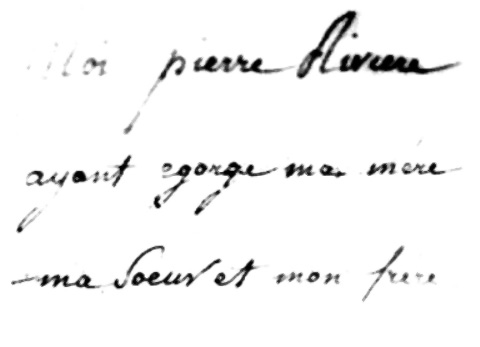 Moi pierre Riviere
ayant egorge ma mère
ma Soeur et mon frere